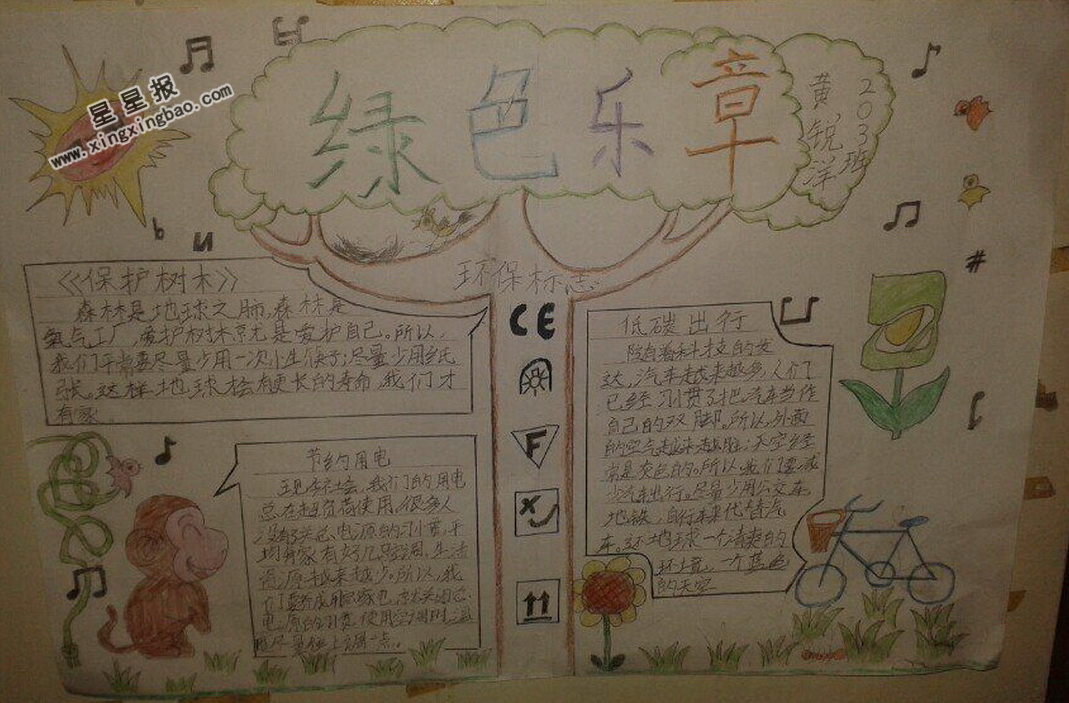 星星报
www.xingxingbao.com
绿色乐章
203班
黄锐洋
环保标志
CE
F
《保护树木》
森林是地球之肺,森林是
氧气工厂,爱护树木就是爱护自己。所以,
我们平常要尽量少用一次小生筷子;尽量少用纸
张。这样地球会有更长的寿命,我们才
有家
节约用电
现今社会,我们的用电
总在超负荷使用,很多人
没有关总电源的习惯,平
均每家有好几
资源越来越少。所以,我
电源的习惯,使用空调时,温
尽量往上调一点。
低碳出行
随着科技的发
达,汽车越来越多,人们
已经习惯了把汽车当作
自己的双脚。所以,外面
的空气越来越脏;天空经
常是灰色的。所以,我们要减
少汽车出行。尽量少用公交车
地铁,自行车来代替汽
车。还地球一个清爽的
环境,一个蓝色
的天空